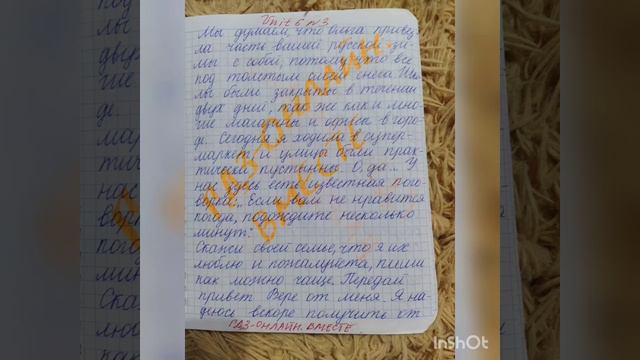 Unit 6 №3
Мы думаем, что Ольга привез
ла часть вашей русской зи-
мы с собой, потому что все
под толстым слоем снега. Шко
лы были закрыты в течении
двух дней, так же как и мно-
гие магазины и офисы в горо-
де. Сегодня я ходила в супер-
маркет, и улицы были прак-
тически пустынно. О, да... У
нас здесь есть известная пого-
ворка: „Если вам не нравится
погода, подождите несколько
минут."
Скажи своей семье, что я их
люблю и пожалуйста, пиши
как можно чаще. Передай
привет Вере от меня. Я на-
деюсь вскоре получить от
ГДЗ-ОНЛАЙН. ВМЕСТЕ
InShOt